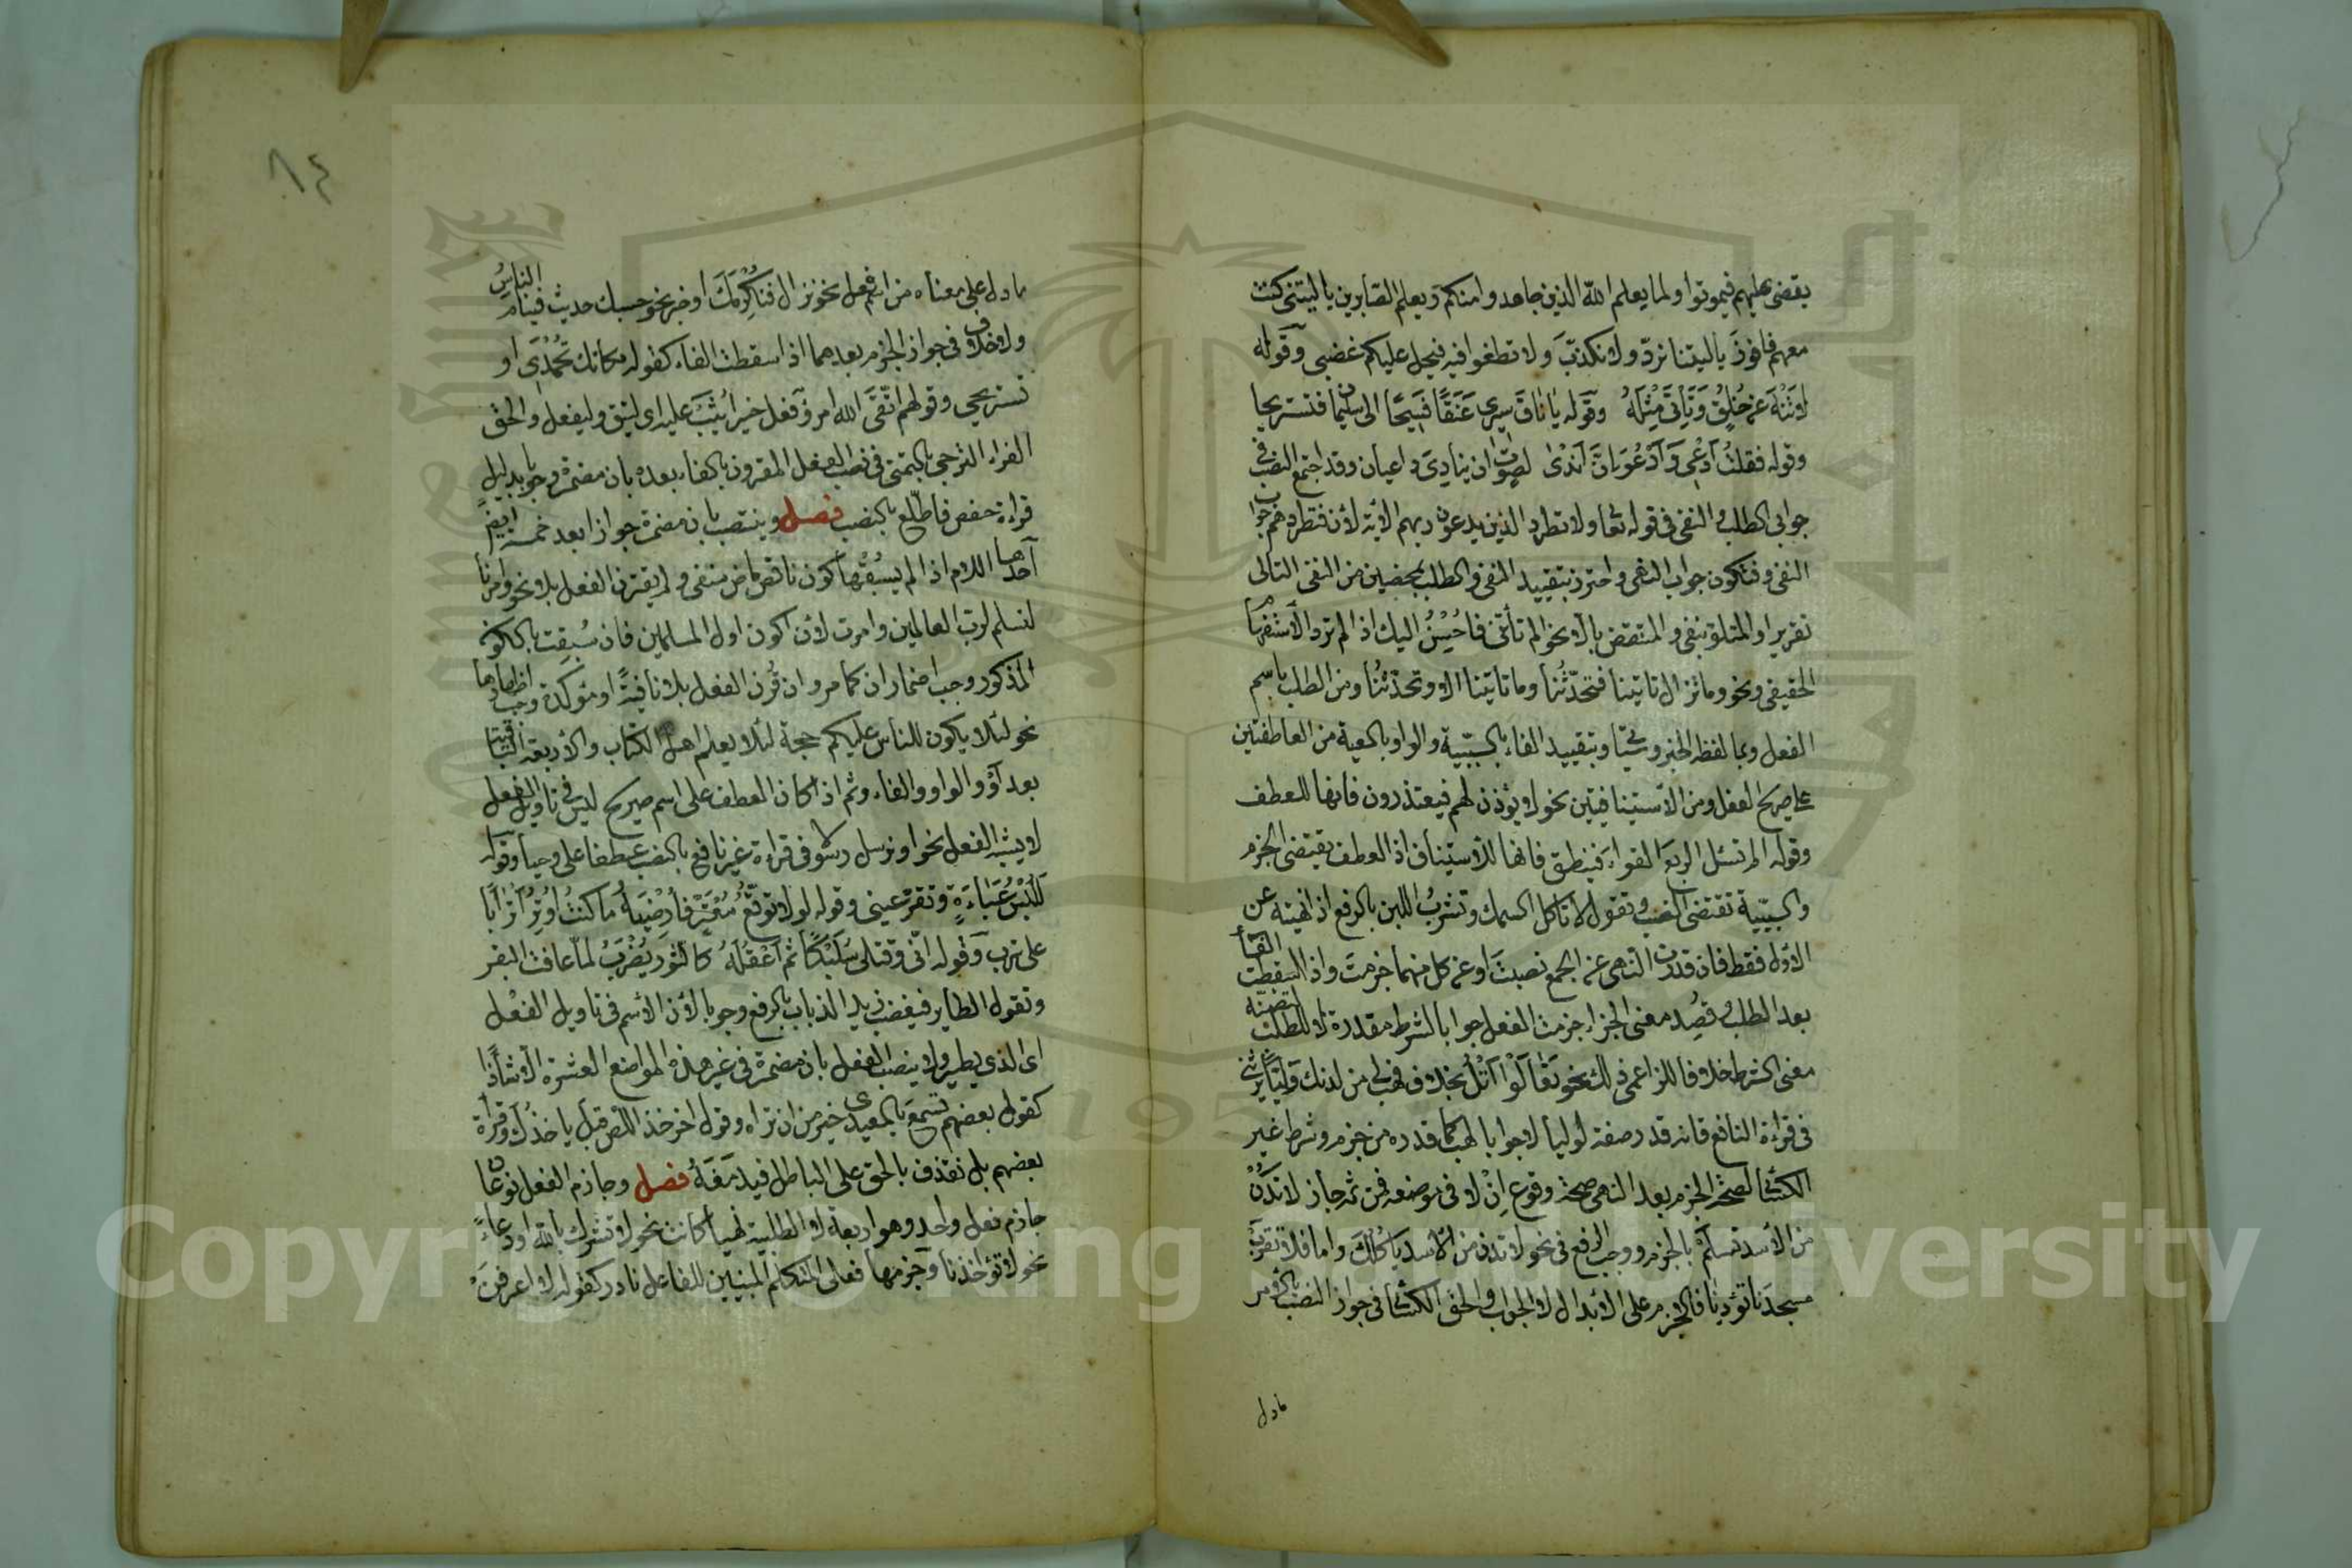 يقضى عليهم فيموتوا ولما يعلم الله الذين جاهدوا منكم ويعلم الصابرين يا ليتني كنت
معهم فافوز يا ليتنا نردّ ولا نكذبَ ولا تطغوا فيه فيحل عليكم غضبى وقوله
لا تنه عن خُلُقٍ وتأتيَ مثلهُ وقوله يا ناقَ سيرى عَنَقًا فسيحًا الى سليمان فنستريحا
وقوله فقلتُ ادعى وَأدعُوَ انّ اندى لصوت ان ينادىَ داعيان وقد اجتمع النصب فى
جوابى الطلب والنفى فى قوله تعا ولا تطرد الذين يدعون ربهم الآية لأن فتطردهم جواب
النفى وفتكون جواب النهى واحترز بتقييد النفى والطلب بمحضين من النفى التالى
تقريرا والمتلو بنفى والمنتقض بالّا نحو الم تأتنى فاحُسِنُ اليك اذا لم ترد الاستفهام
الحقيقى ونحو وما تزال تاتينا فتحدّثُنا وما تاتينا الا وتحدّثنُا ومن الطلب باسم
الفعل وبما لفظه الخبر وسيأتى وبتقييد الفاء بالسببية والواو بالمعية من العاطفتين
على صريح الفعل ومن الاستينافيتين نحو لا يؤذن لهم فيعتذرون فانها للعطف
وقوله الم تسئل الربعَ القواءَ فينطق فانها للاستيناف اذ العطف يقتضى الجزم
والسببية تقتضى النصب وتقول لا تاكل السمك وتشربُ اللبن بالرفع اذا نهيته عن
الاول فقط فان قدرت النهى عن الجمع نصبتَ او عن كل منهما جزمتَ واذا اسقطت الفاء
بعد الطلب وقُصِد معنى الجزاء جزمت الفعل جوابا لشرط مقدر لا للطلب لتضمنه
معنى الشرط خلافا لزاعمى ذلك نحو تعَالَوْا اَتْلُ بخلاف فهب لى من لدنك وليًّا يرثنى
فى قراءة النافع فانه قدر صفة لوليا لا جوابا لهب كما قدره من جزم وشرط غير
الكسائى لصحة الجزم بعد النهى صحة وقوع اِنْ لا فى موضعه فمن ثمه جاز لا تدنُ
من الأسد تسلمْ بالجزم ووجب الرفع فى نحو لا تدن من الأسد يأكُلُك واما فلا تقربْ
مسجدَنا تؤذِنا فالجزم على الابدال لا الجواب والحق الكسائى فى جواز النصب بالامر
مادل
٨٤
مادل على معناه من اسم فعل نحو نزال فنُكْرِمَك او خبر نحو حسبك حديث فينام الناسُ
ولا خلاف فى جواز الجزم بعدهما اذا سقطت الفاء كقوله مكانك تُحْمَدِى او
تستريحي وقولهم اتّقَى الله امرؤٌ فعل خيرا يُثَبْ عليه اى ليتق وليفعل والحق
الفراء الترجي بالتمنى فى نصب الفعل المقرون بالفاء بعده بان مضمرة وجوبا بدليل
قراءة حفص فاطّلع بالنصب فصل وينتصب بان مضمرة جوازا بعد خمسة ايضًا
احدها اللام اذا لم يسبقْها كون ناقص ماض منفى ولم يقترن الفعل بلا نحو وامرنا
لنسلم لرب العالمين وامرت لأن اكون اول المسلمين فان سُبِقت بالكون
المذكور وجب اضمار ان كما مر وان قُرن الفعل بلا نافيةً او مؤكدة وجب اظهارها
نحو لئلا يكون للناس عليكم حجة لئلا يعلم اهل الكتاب والاربعة الباقية
بعد اَوْ والواو والفاء وثم اذا كان العطف على اسم صريح ليس فى تاويل الفعل
لا يشبه الفعل نحو او نرسل رسولا فى قراءة غير نافع بالنصب عطفا على وحيا وقوله
لَلُبْسُ عَبَاءَةٍ وتقرّ عينى وقوله لولا توقّعُ مُعْتَرٍّ فأرضِيَهُ ما كنتُ اُوثِرُ اترابًا
على ترب وقوله انّى وقتلى سُلَيْكًا ثم اَعْقِلَهُ كالثور يُضْرَبُ لمّا عافت البقر
وتقول الطاير فيغضب زيد الذباب بالرفع وجوبا لأن الاسم فى تاويل الفعل
اى الذى يطير ولا ينصب الفعل بان مضمرة فى غير هذه المواضع العشرة الا شاذًا
كقول بعضهم تسمعَ بالمعيدى خير من ان تراه وقول اخر خذ اللص قبل ياخذَك وقراءة
بعضهم بل نقذف بالحق على الباطل فيدمغَهُ فصل وجازم الفعل نوعان
جازم فعل واحد وهو اربعة لا الطلبية نهيا كانت نحو لا تشرك بالله او دعاءً
نحو لا تؤاخذنا وجزمها فعلى المتكلم المبنيين للفاعل نادر كقوله لا اعرفنَ